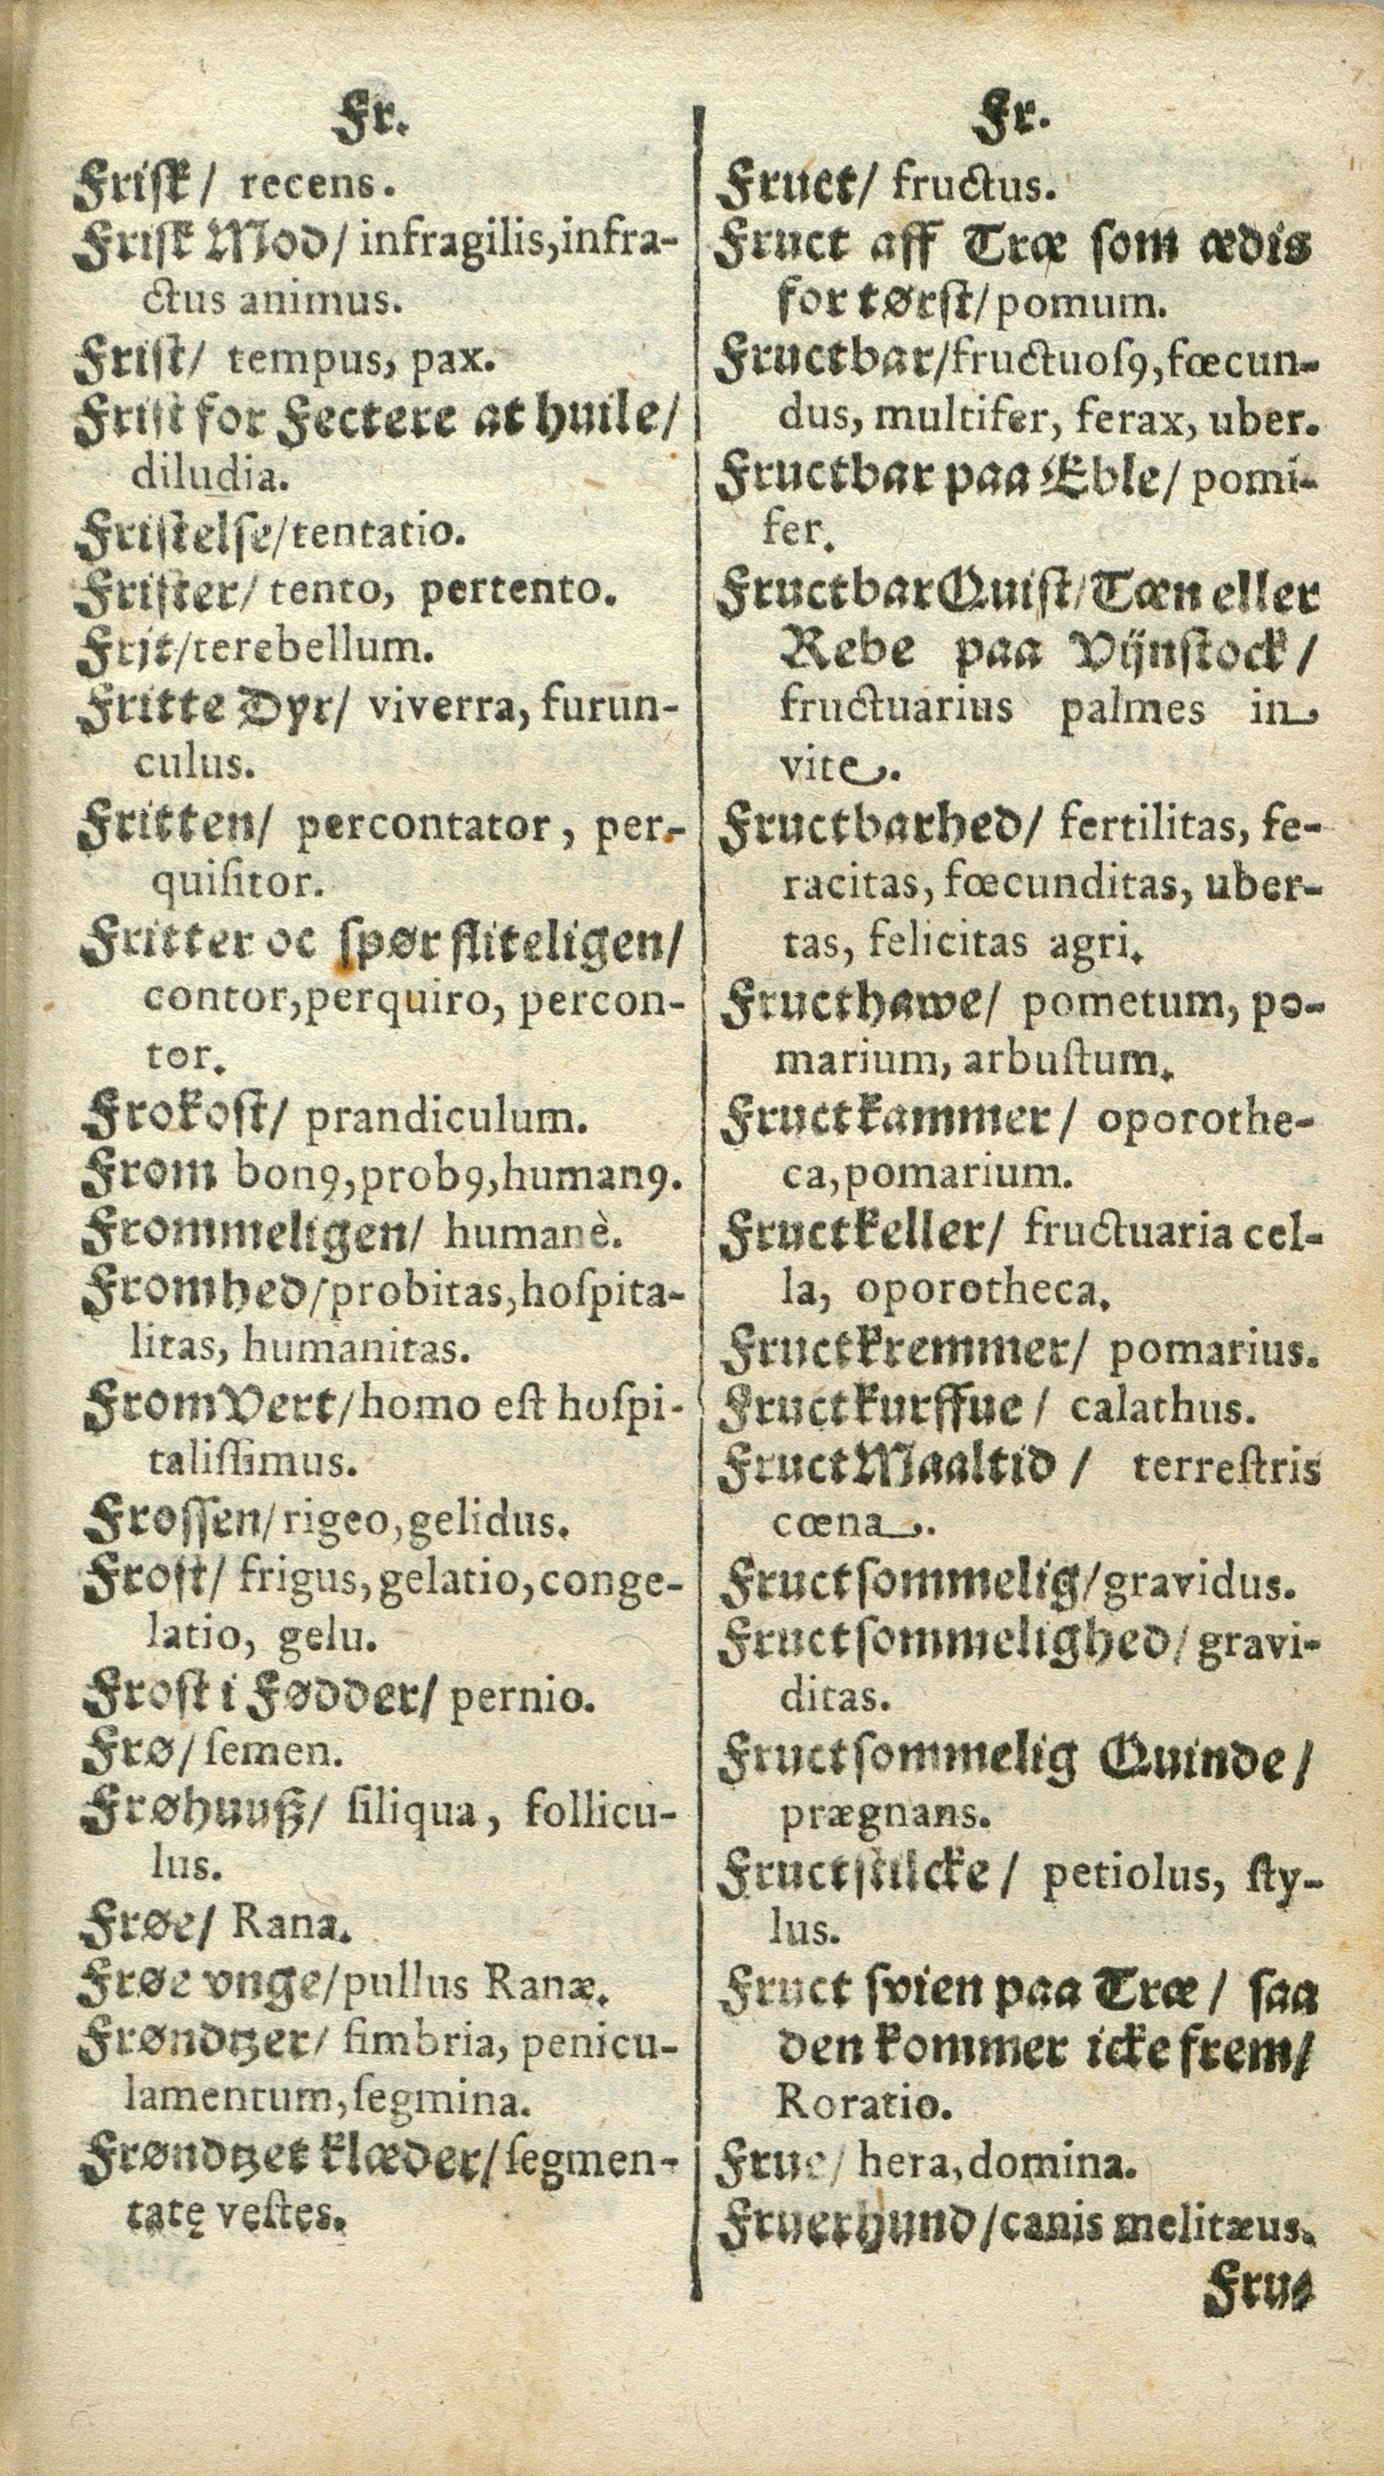 Fr.
Friſk/ recens.
Friſk Mod/ infragilis, infra-
ctus animus.
Friſt/ tempus, pax.
Friſt for Fectere at huile/
diludia.
Friſtelſe/ tentatio.
Friſter/ tento, pertento.
Frit/ terebellum.
Fritte Dyr/ viverra, furun-
culus.
Fritten/ percontator, per-
quiſitor.
Fritter oc ſpør fliteligen/
contor, perquiro, percon-
tor.
Frokoſt/ prandiculum.
From bonꝰ, probꝰ, humanꝰ.
Frommeligen/ humanè.
Fromhed/ probitas, hoſpita-
litas, humanitas.
From Vert/ homo eſt hoſpi-
taliſſimus.
Froſſen/ rigeo, gelidus.
Froſt/ frigus, gelatio, conge-
latio, gelu.
Froſt i Fødder/ pernio.
Frø/ ſemen.
Frøhuuß/ ſiliqua, follicu-
lus.
Frøe/ Rana.
Frøe vnge/ pullus Ranæ.
Frøndtzer/ fimbria, penicu-
lamentum, ſegmina.
Frøndtzet klæder/ ſegmen-
tatę veſtes.
Fr.
Fruct/ fructus.
Fruct aff Træ ſom ædis
for tørſt/ pomum.
Fructbar/ fructuoſꝰ, fœcun-
dus, multifer, ferax, uber.
Fructbar paa Eble/ pomi-
fer.
Fructbar Quiſt/ Tæn eller
Rebe paa Vijnſtock/
fructuarius palmes in
vite.
Fructbarhed/ fertilitas, fe-
racitas, fœcunditas, uber-
tas, felicitas agri.
Fructhawe/ pometum, po-
marium, arbuſtum.
Fructkammer/ oporothe-
ca, pomarium.
Fructkeller/ fructuaria cel-
la, oporotheca.
Fructkremmer/ pomarius.
Fructkurffue/ calathus.
Fruct Maaltid/ terreſtris
cœna.
Fructſommelig/ gravidus.
Fructſommelighed/ gravi-
ditas.
Fructſommelig Quinde/
prægnans.
Fructſtilcke/ petiolus, ſty-
lus.
Fruct ſvien paa Træ/ ſaa
den kommer icke frem/
Roratio.
Frue/ hera, domina.
Fruerhund/ canis melitæus.
Fru-